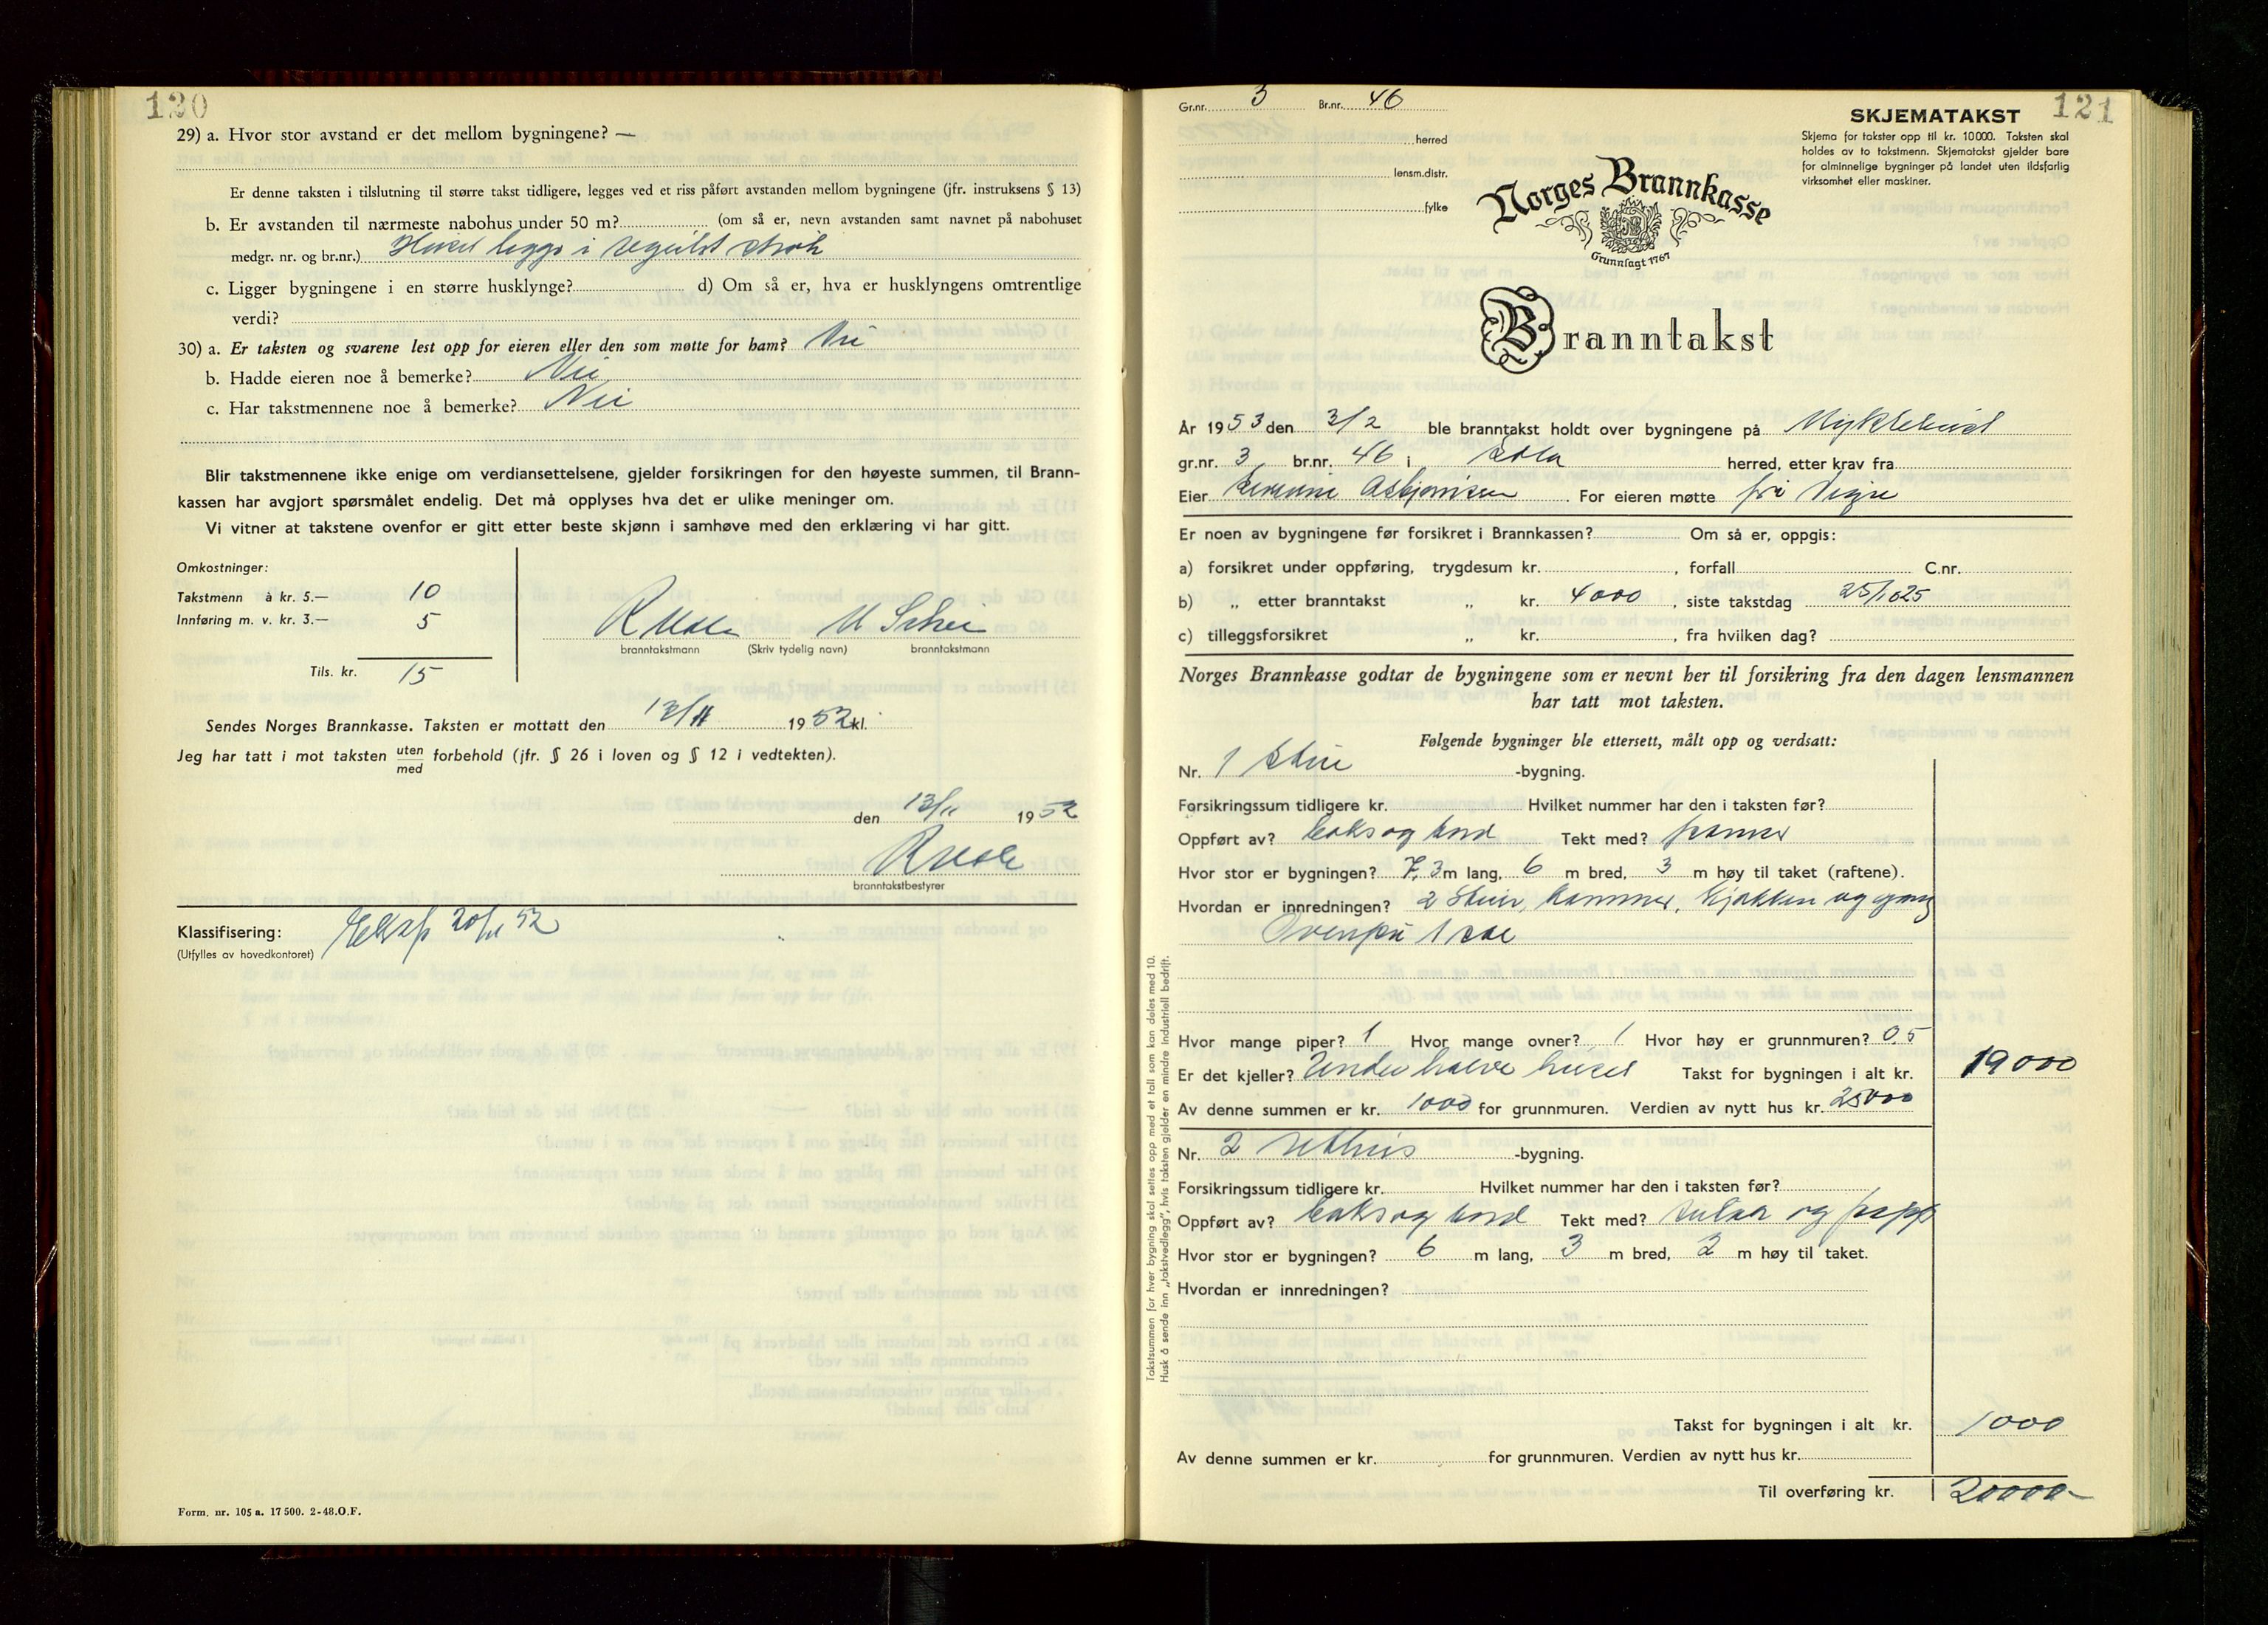 120
29) a. Hvor stor avstand er det mellom bygningene? —
Er denne taksten i tilslutning til større takst tidligere, legges ved et riss påført avstanden mellom bygningene (jfr. instruksens § 13)
b. Er avstanden til nærmeste nabohus under 50 m? (om så er, nevn avstanden samt navnet på nabohuset
medgr. nr. og br.nr.) Huset leggs i regulert strøk
c. Ligger bygningene i en større husklynge? d) Om så er, hva er husklyngens omtrentlige
verdi?
30) a. Er taksten og svarene lest opp for eieren eller den som møtte for ham? Nei
b. Hadde eieren noe å bemerke? Nei
c. Har takstmennene noe å bemerke? Nei
Blir takstmennene ikke enige om verdiansettelsene, gjelder forsikringen for den høyeste summen, til Brann-
kassen har avgjort spørsmålet endelig. Det må opplyses hva det er ulike meninger om.
Vi vitner at takstene ovenfor er gitt etter beste skjønn i samhøve med den erklæring vi har gitt.
Omkostninger:
Takstmenn à kr. 5.— 10
Innføring m. v. kr. 3.— 5
Tils. kr. 15
branntakstmann (Skriv tydelig navn) branntakstmann
Sendes Norges Brannkasse. Taksten er mottatt den 13/11 1952 kl.
Jeg har tatt i mot taksten uten/med forbehold (jfr. § 26 i loven og § 12 i vedtekten).
den 13/11 1952
branntakstbestyrer
Klassifisering: Eksp 20/11 52
(Utfylles av hovedkontoret)
Form. nr. 105 a. 17 500. 2-48.O.F.
121
Gr.nr. 3 Br.nr. 46
herred
lensm.distr.
fylke
SKJEMATAKST
Skjema for takster opp til kr. 10 000. Taksten skal
holdes av to takstmenn. Skjematakst gjelder bare
for alminnelige bygninger på landet uten ildsfarlig
virksomhet eller maskiner.
Norges Brannkasse
Grunnlagt 1767
Branntakst
År 1953 den 3/2 ble branntakst holdt over bygningene på Myklebust
gr.nr. 3 br.nr. 46 i Sola herred, etter krav fra
Eier Asbjørnsen For eieren møtte
Er noen av bygningene før forsikret i Brannkassen? Om så er, oppgis:
a) forsikret under oppføring, trygdesum kr. , forfall C.nr.
b) „ etter branntakst „ kr. 4000 , siste takstdag 25/1 625
c) tilleggsforsikret „ kr. , fra hvilken dag?
Norges Brannkasse godtar de bygningene som er nevnt her til forsikring fra den dagen lensmannen
har tatt mot taksten.
Følgende bygninger ble ettersett, målt opp og verdsatt:
Nr. 1 Stue -bygning.
Forsikringssum tidligere kr. Hvilket nummer har den i taksten før?
Oppført av? boks og bord Tekt med? panner
Hvor stor er bygningen? 7,3 m lang, 6 m bred, 3 m høy til taket (raftene).
Hvordan er innredningen? 2 Stuer, kammer, kjøkken og gang
Ovenpå 1 sal
Hvor mange piper? 1 Hvor mange ovner? 1 Hvor høy er grunnmuren? 0,5
Er det kjeller? Under halve huset Takst for bygningen i alt kr. 19000
Av denne summen er kr. 1000 for grunnmuren. Verdien av nytt hus kr. 25000
Nr. 2 Uthus -bygning.
Forsikringssum tidligere kr. Hvilket nummer har den i taksten før?
Oppført av? boks og bord Tekt med? sutak og papp
Hvor stor er bygningen? 6 m lang, 3 m bred, 2 m høy til taket.
Hvordan er innredningen?
Takst for bygningen i alt kr. 1000
Av denne summen er kr. for grunnmuren. Verdien av nytt hus kr.
Til overføring kr. 20000-
Takstsummen for hver bygning skal settes opp med et tall som kan deles med 10.
Husk å sende inn „takstvedlegg", hvis taksten gjelder en mindre industriell bedrift.